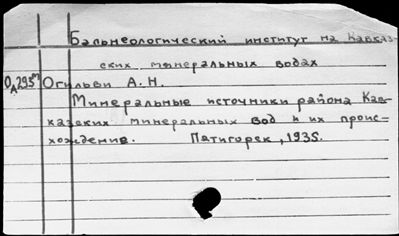 Бальнеологический институт на Кавказ-
ских минеральных водах
Огильви А. Н.
Минеральные источники района Кав-
казских минеральных вод и их проис=
хождение. Пятигорск, 1935.